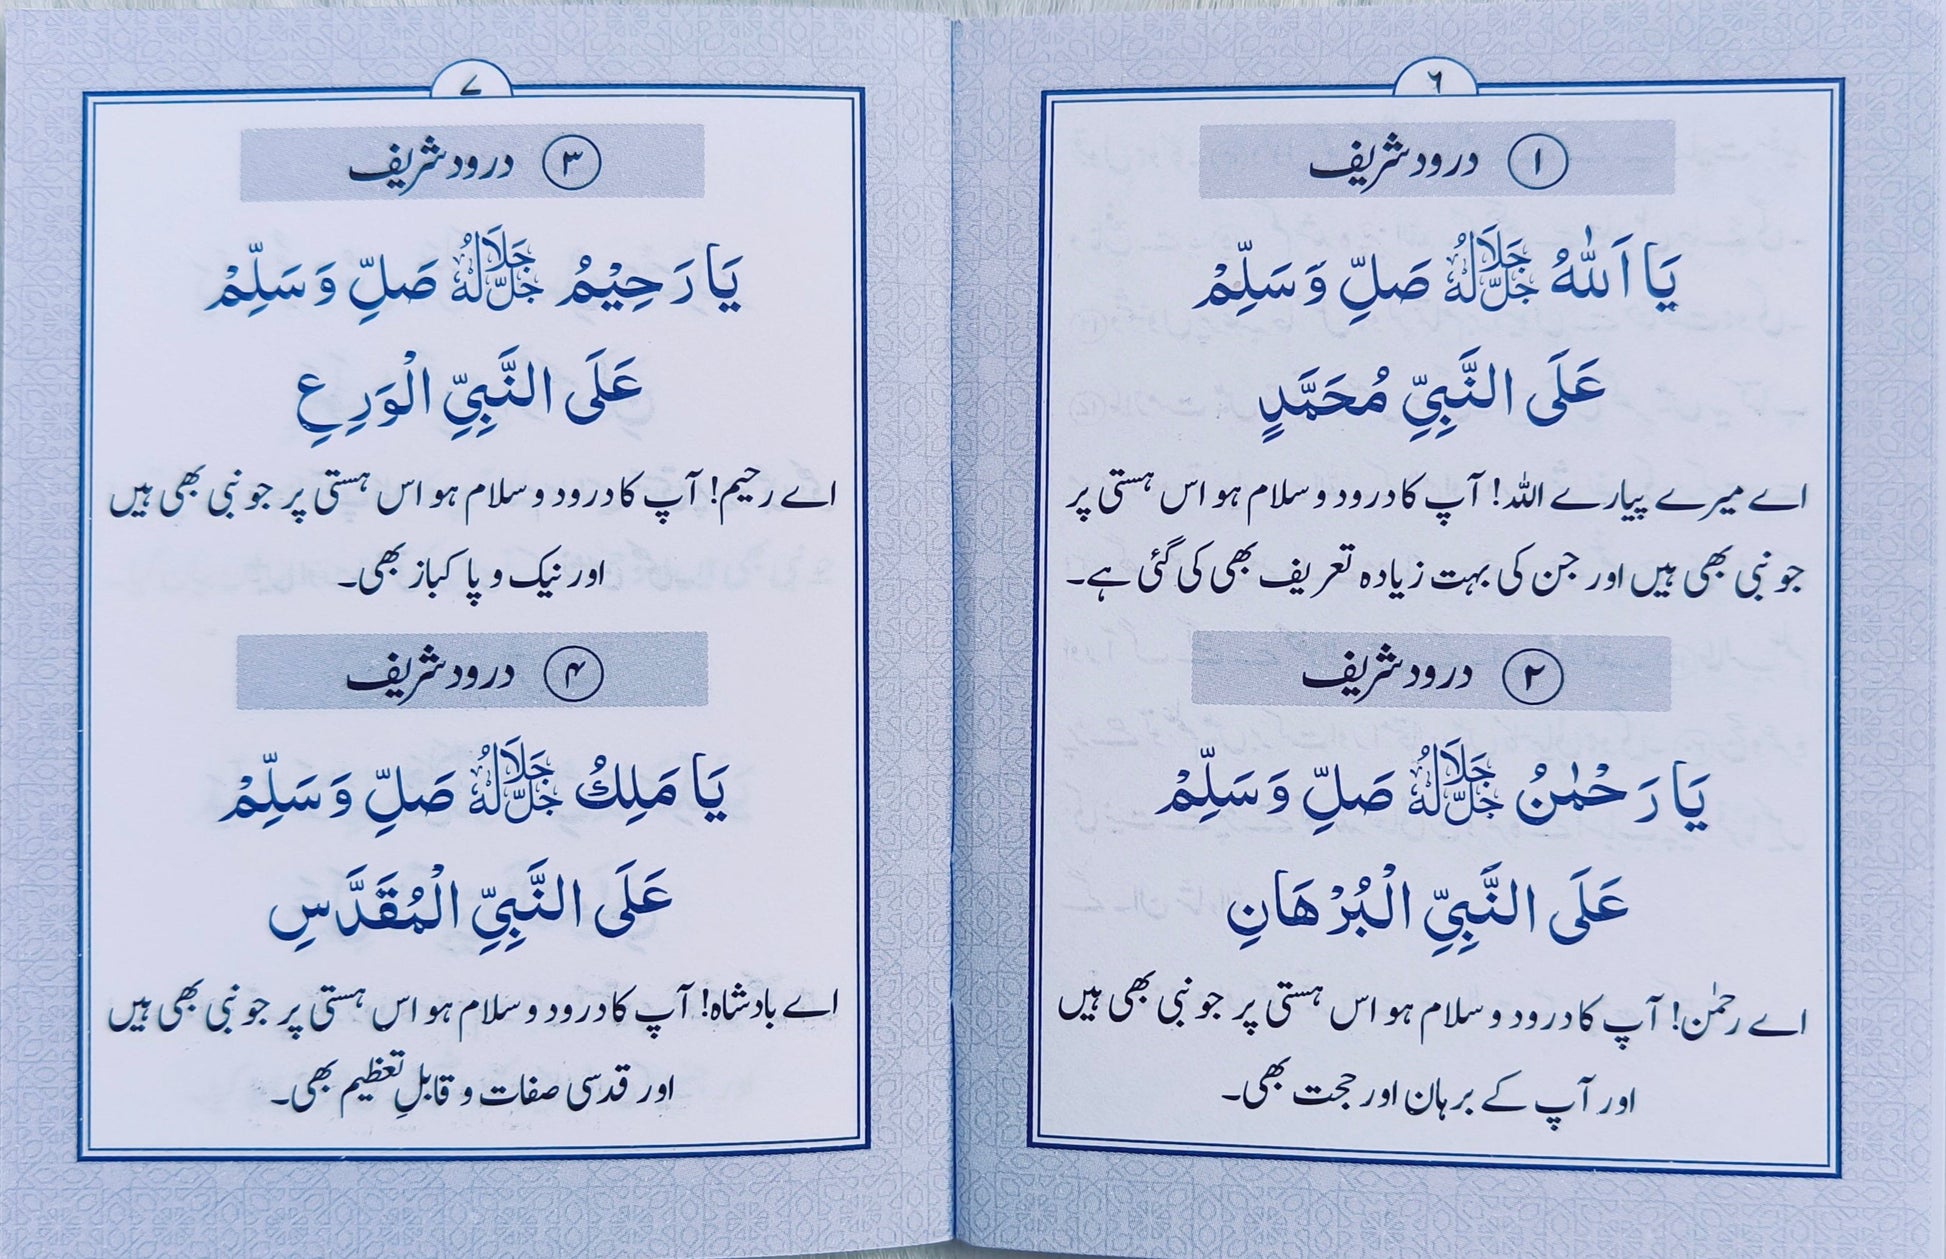 ۶
۱ درود شریف
يَا اَللّٰهُ جَلَّ جَلَالُهٗ صَلِّ وَسَلِّمْ
عَلَى النَّبِيِّ مُحَمَّدٍ
اے میرے پیارے اللہ! آپ کا درود و سلام ہو اس ہستی پر
جو نبی بھی ہیں اور جن کی بہت زیادہ تعریف بھی کی گئی ہے۔
۲ درود شریف
يَا رَحْمٰنُ جَلَّ جَلَالُهٗ صَلِّ وَسَلِّمْ
عَلَى النَّبِيِّ الْبُرْهَانِ
اے رحمٰن! آپ کا درود و سلام ہو اس ہستی پر جو نبی بھی ہیں
اور آپ کے برہان اور حجت بھی۔
۷
۳ درود شریف
يَا رَحِيْمُ جَلَّ جَلَالُهٗ صَلِّ وَسَلِّمْ
عَلَى النَّبِيِّ الْوَرِعِ
اے رحیم! آپ کا درود و سلام ہو اس ہستی پر جو نبی بھی ہیں
اور نیک و پاکباز بھی۔
۴ درود شریف
يَا مَلِكُ جَلَّ جَلَالُهٗ صَلِّ وَسَلِّمْ
عَلَى النَّبِيِّ الْمُقَدَّسِ
اے بادشاہ! آپ کا درود و سلام ہو اس ہستی پر جو نبی بھی ہیں
اور قدسی صفات و قابلِ تعظیم بھی۔